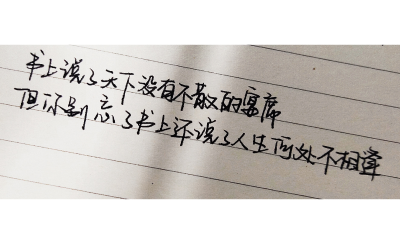 书上说了天下没有不散的宴席
但你别忘了书上还说了人生何处不相逢